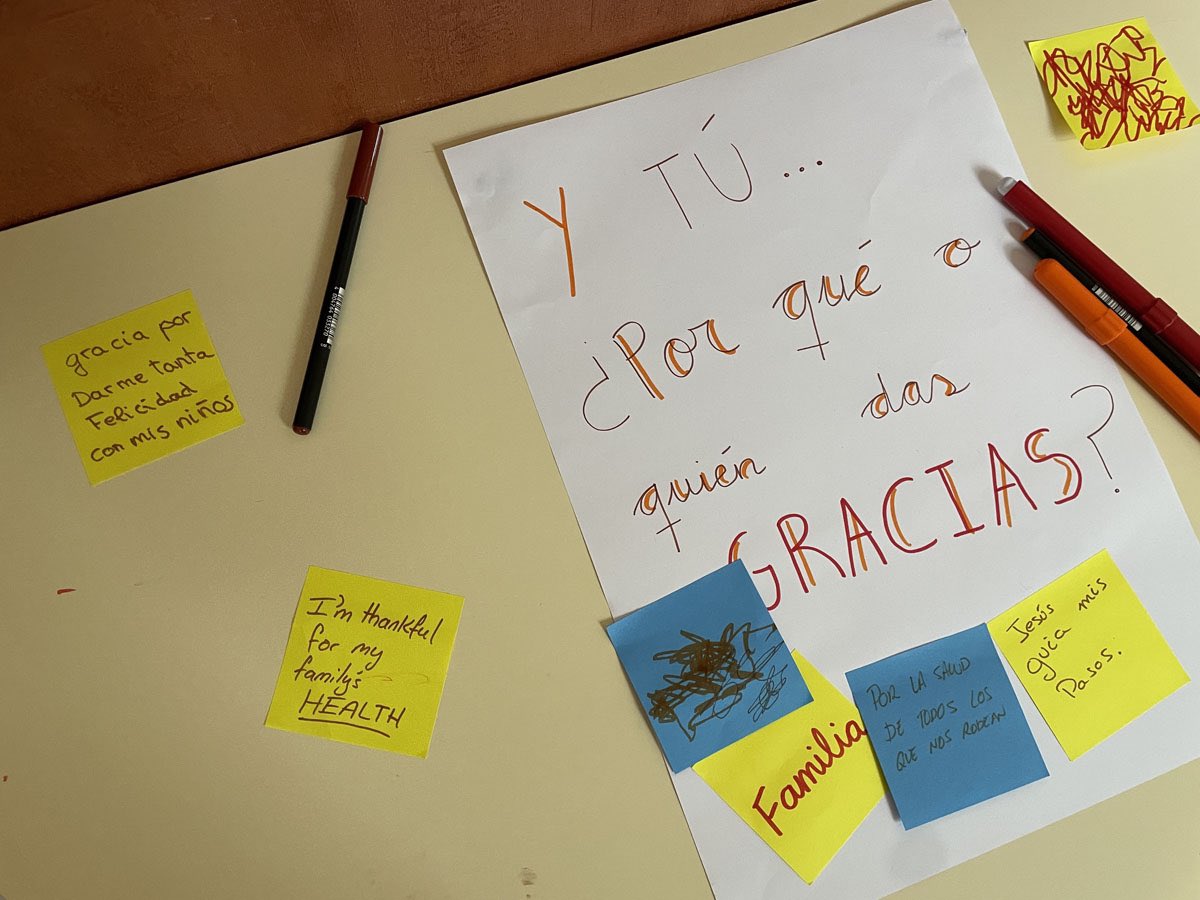 Y TÚ...
¿Por qué o
quién das
GRACIAS?
gracia por
Darme tanta
Felicidad
con mis niños
I'm thankful
for my
family's
HEALTH
Familia
POR LA SALUD
DE TODOS LOS
QUE NOS RODEAN
Jesús
guía mis
Pasos.